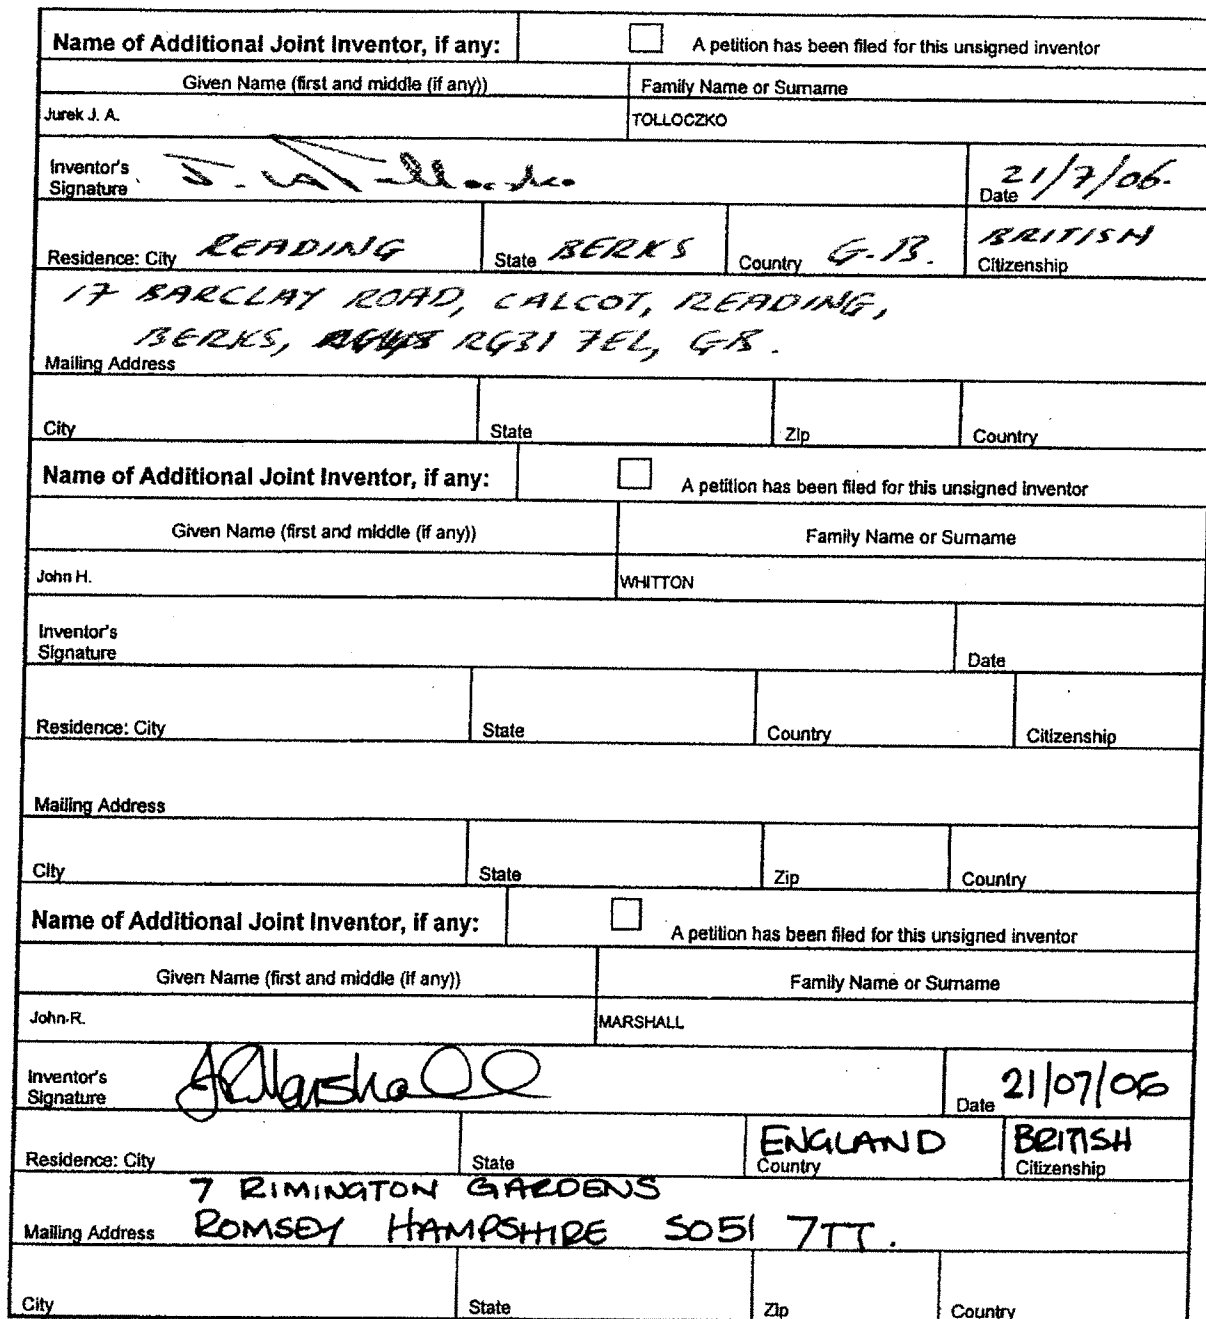 Name of Additional Joint Inventor, if any: A petition has been filed for this unsigned inventor
Given Name (first and middle (if any)) Family Name or Surname
Jurek J. A. TOLLOCZKO
Inventor's
Signature J. Tolloczko Date 21/7/06.
Residence: City READING State BERKS Country G.B. BRITISH Citizenship
17 BARCLAY ROAD, CALCOT, READING,
BERKS, RG31 7EL, GB.
Mailing Address
City State Zip Country
Name of Additional Joint Inventor, if any: A petition has been filed for this unsigned inventor
Given Name (first and middle (if any)) Family Name or Surname
John H. WHITTON
Inventor's
Signature Date
Residence: City State Country Citizenship
Mailing Address
City State Zip Country
Name of Additional Joint Inventor, if any: A petition has been filed for this unsigned inventor
Given Name (first and middle (if any)) Family Name or Surname
John R. MARSHALL
Inventor's
Signature JRMarshall Date 21/07/06
Residence: City State ENGLAND Country BRITISH Citizenship
7 RIMINGTON GARDENS
Mailing Address ROMSEY HAMPSHIRE SO51 7TT.
City State Zip Country